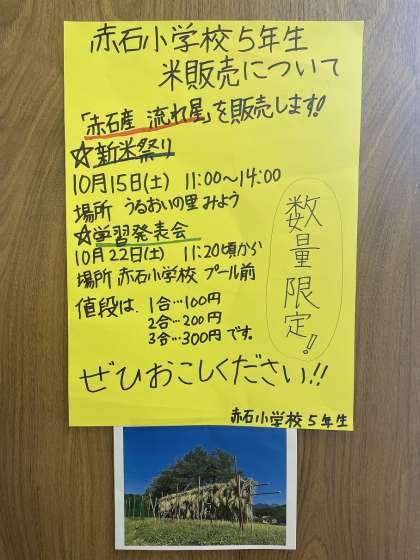 赤石小学校5年生
米販売について
「赤石産 流れ星」を販売します!!
☆新米祭り
10月15日(土) 11:00～14:00
場所 うるおいの里 みよう
☆学習発表会
10月22日(土) 11:20頃から
場所 赤石小学校 プール前
値段は、1合…100円
2合…200円
3合…300円です。
数量限定!!
ぜひおこしください!!
赤石小学校5年生